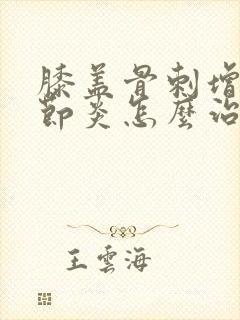 膝盖骨刺增
節炎怎麼治
王雲海